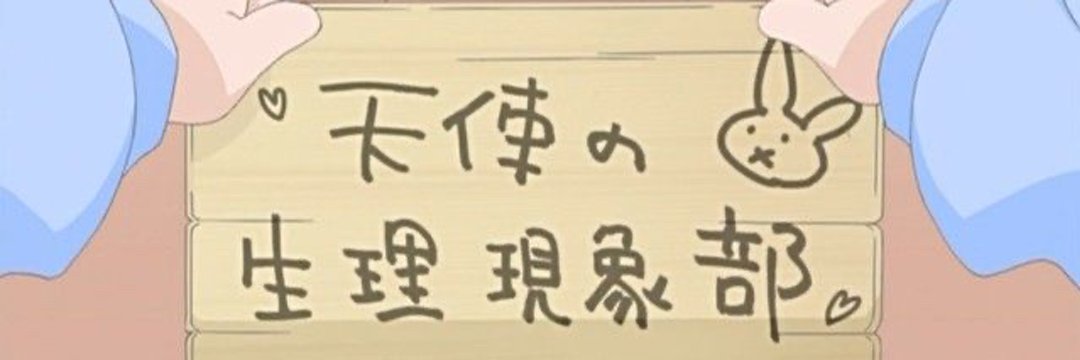 天使の
生理現象部